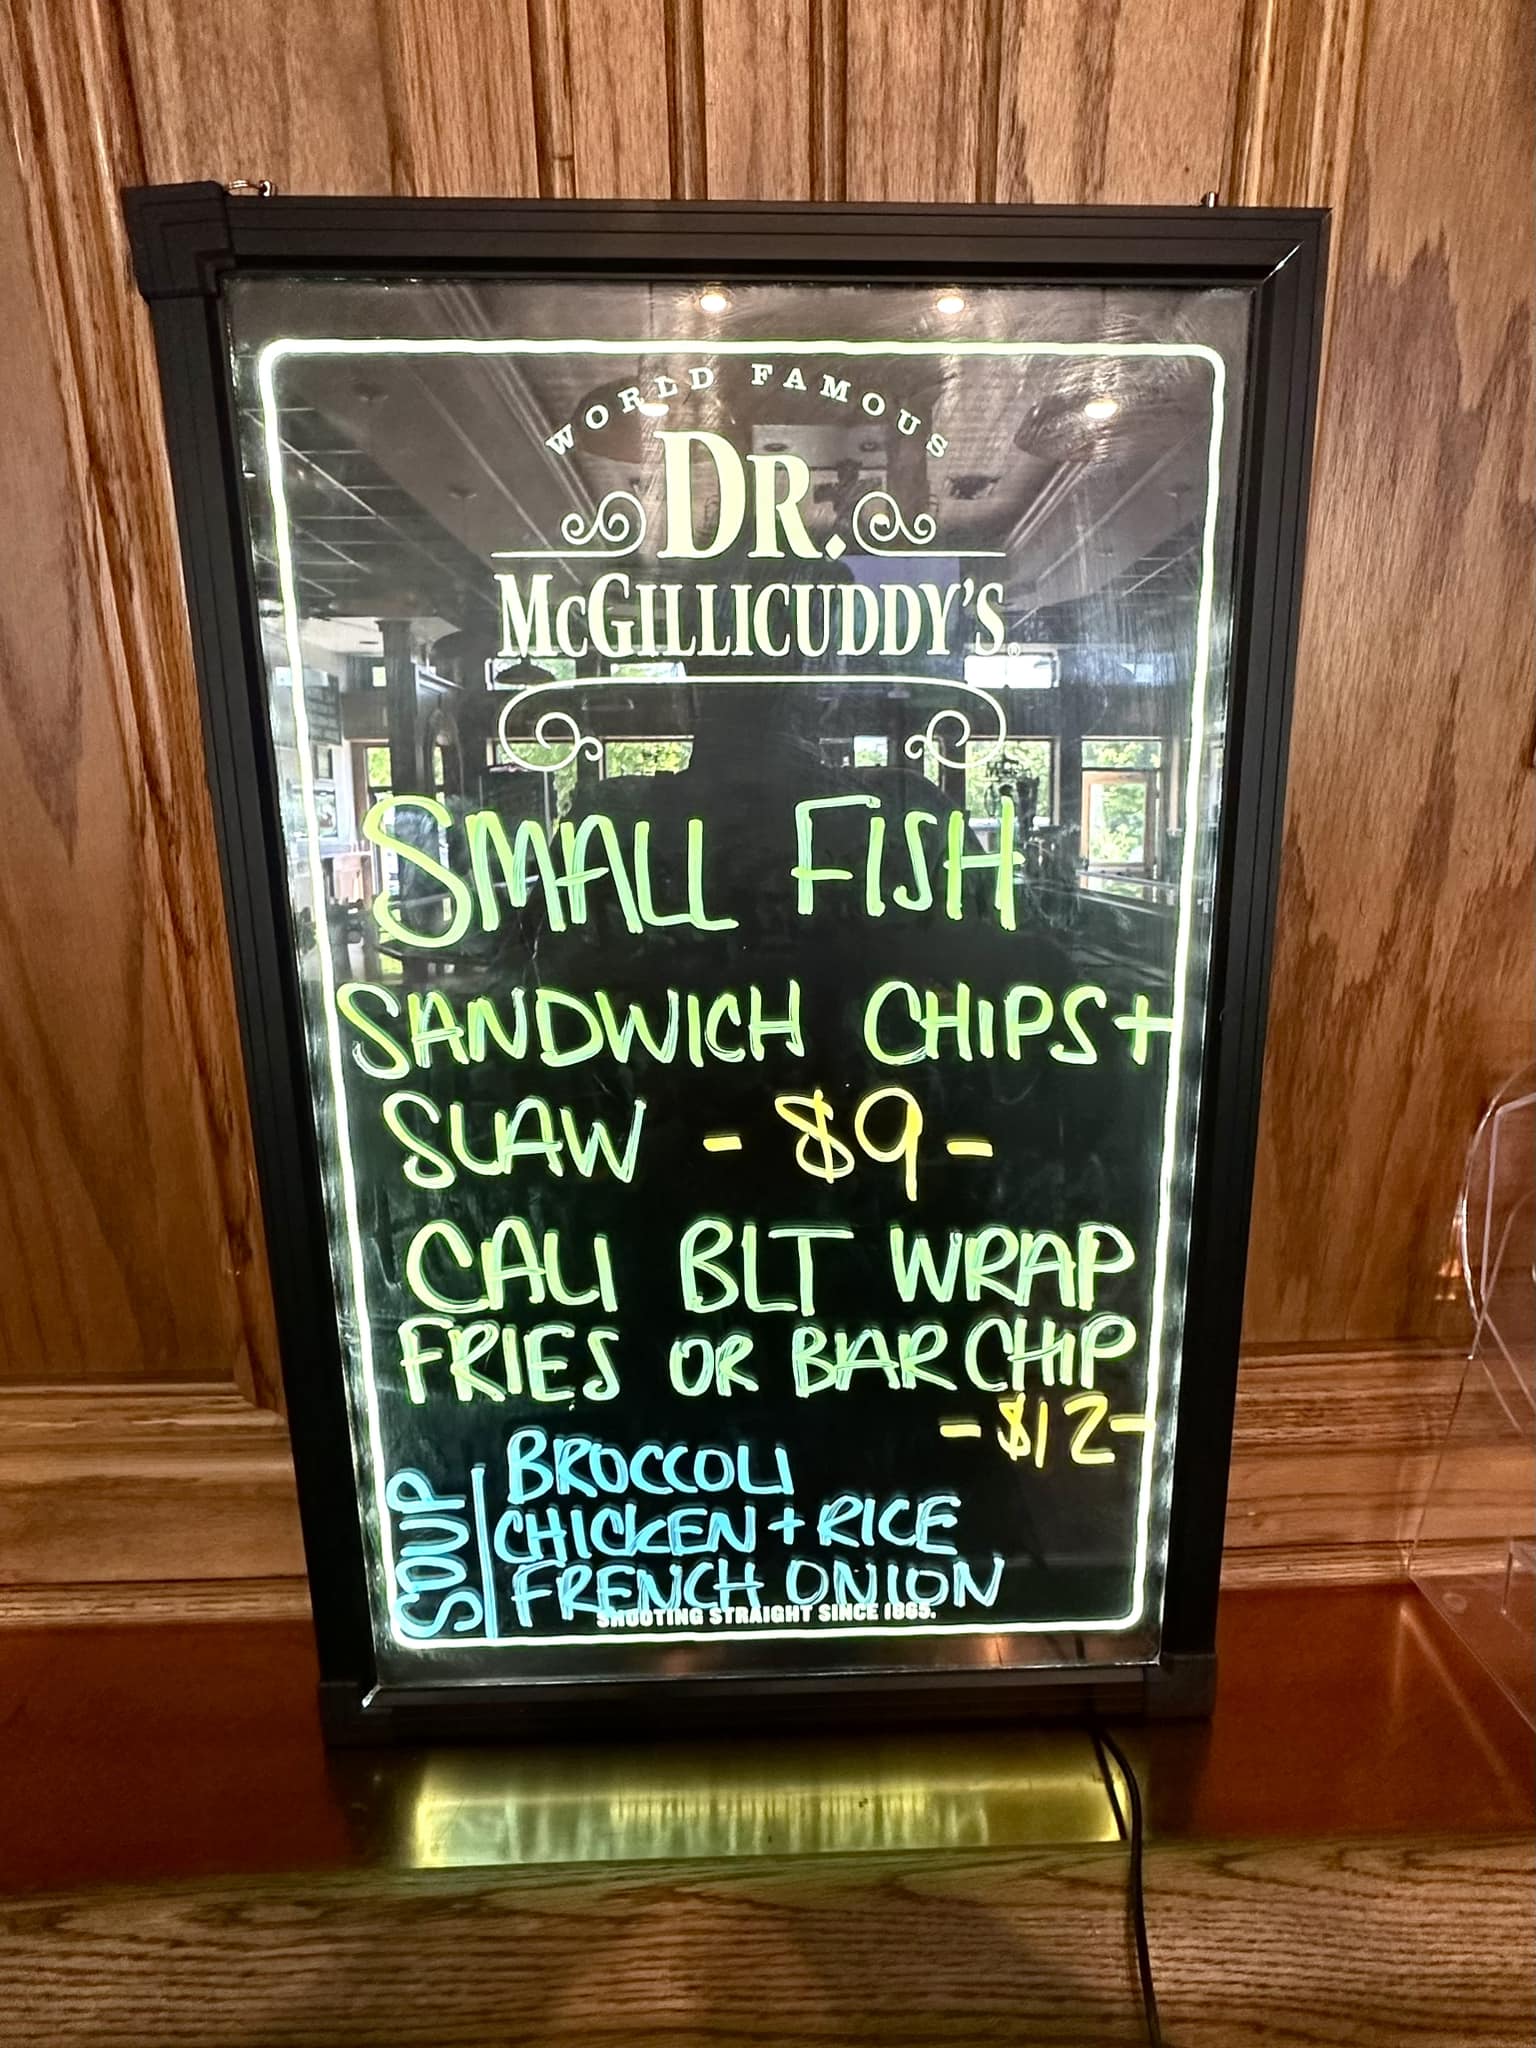 WORLD FAMOUS
DR.
McGILLICUDDY'S®
SMALL FISH
SANDWICH CHIPS +
SLAW - $9 -
CALI BLT WRAP
FRIES OR BAR CHIP
- $12 -
SOUP
BROCCOLI
CHICKEN + RICE
FRENCH ONION
SHOOTING STRAIGHT SINCE 1865.